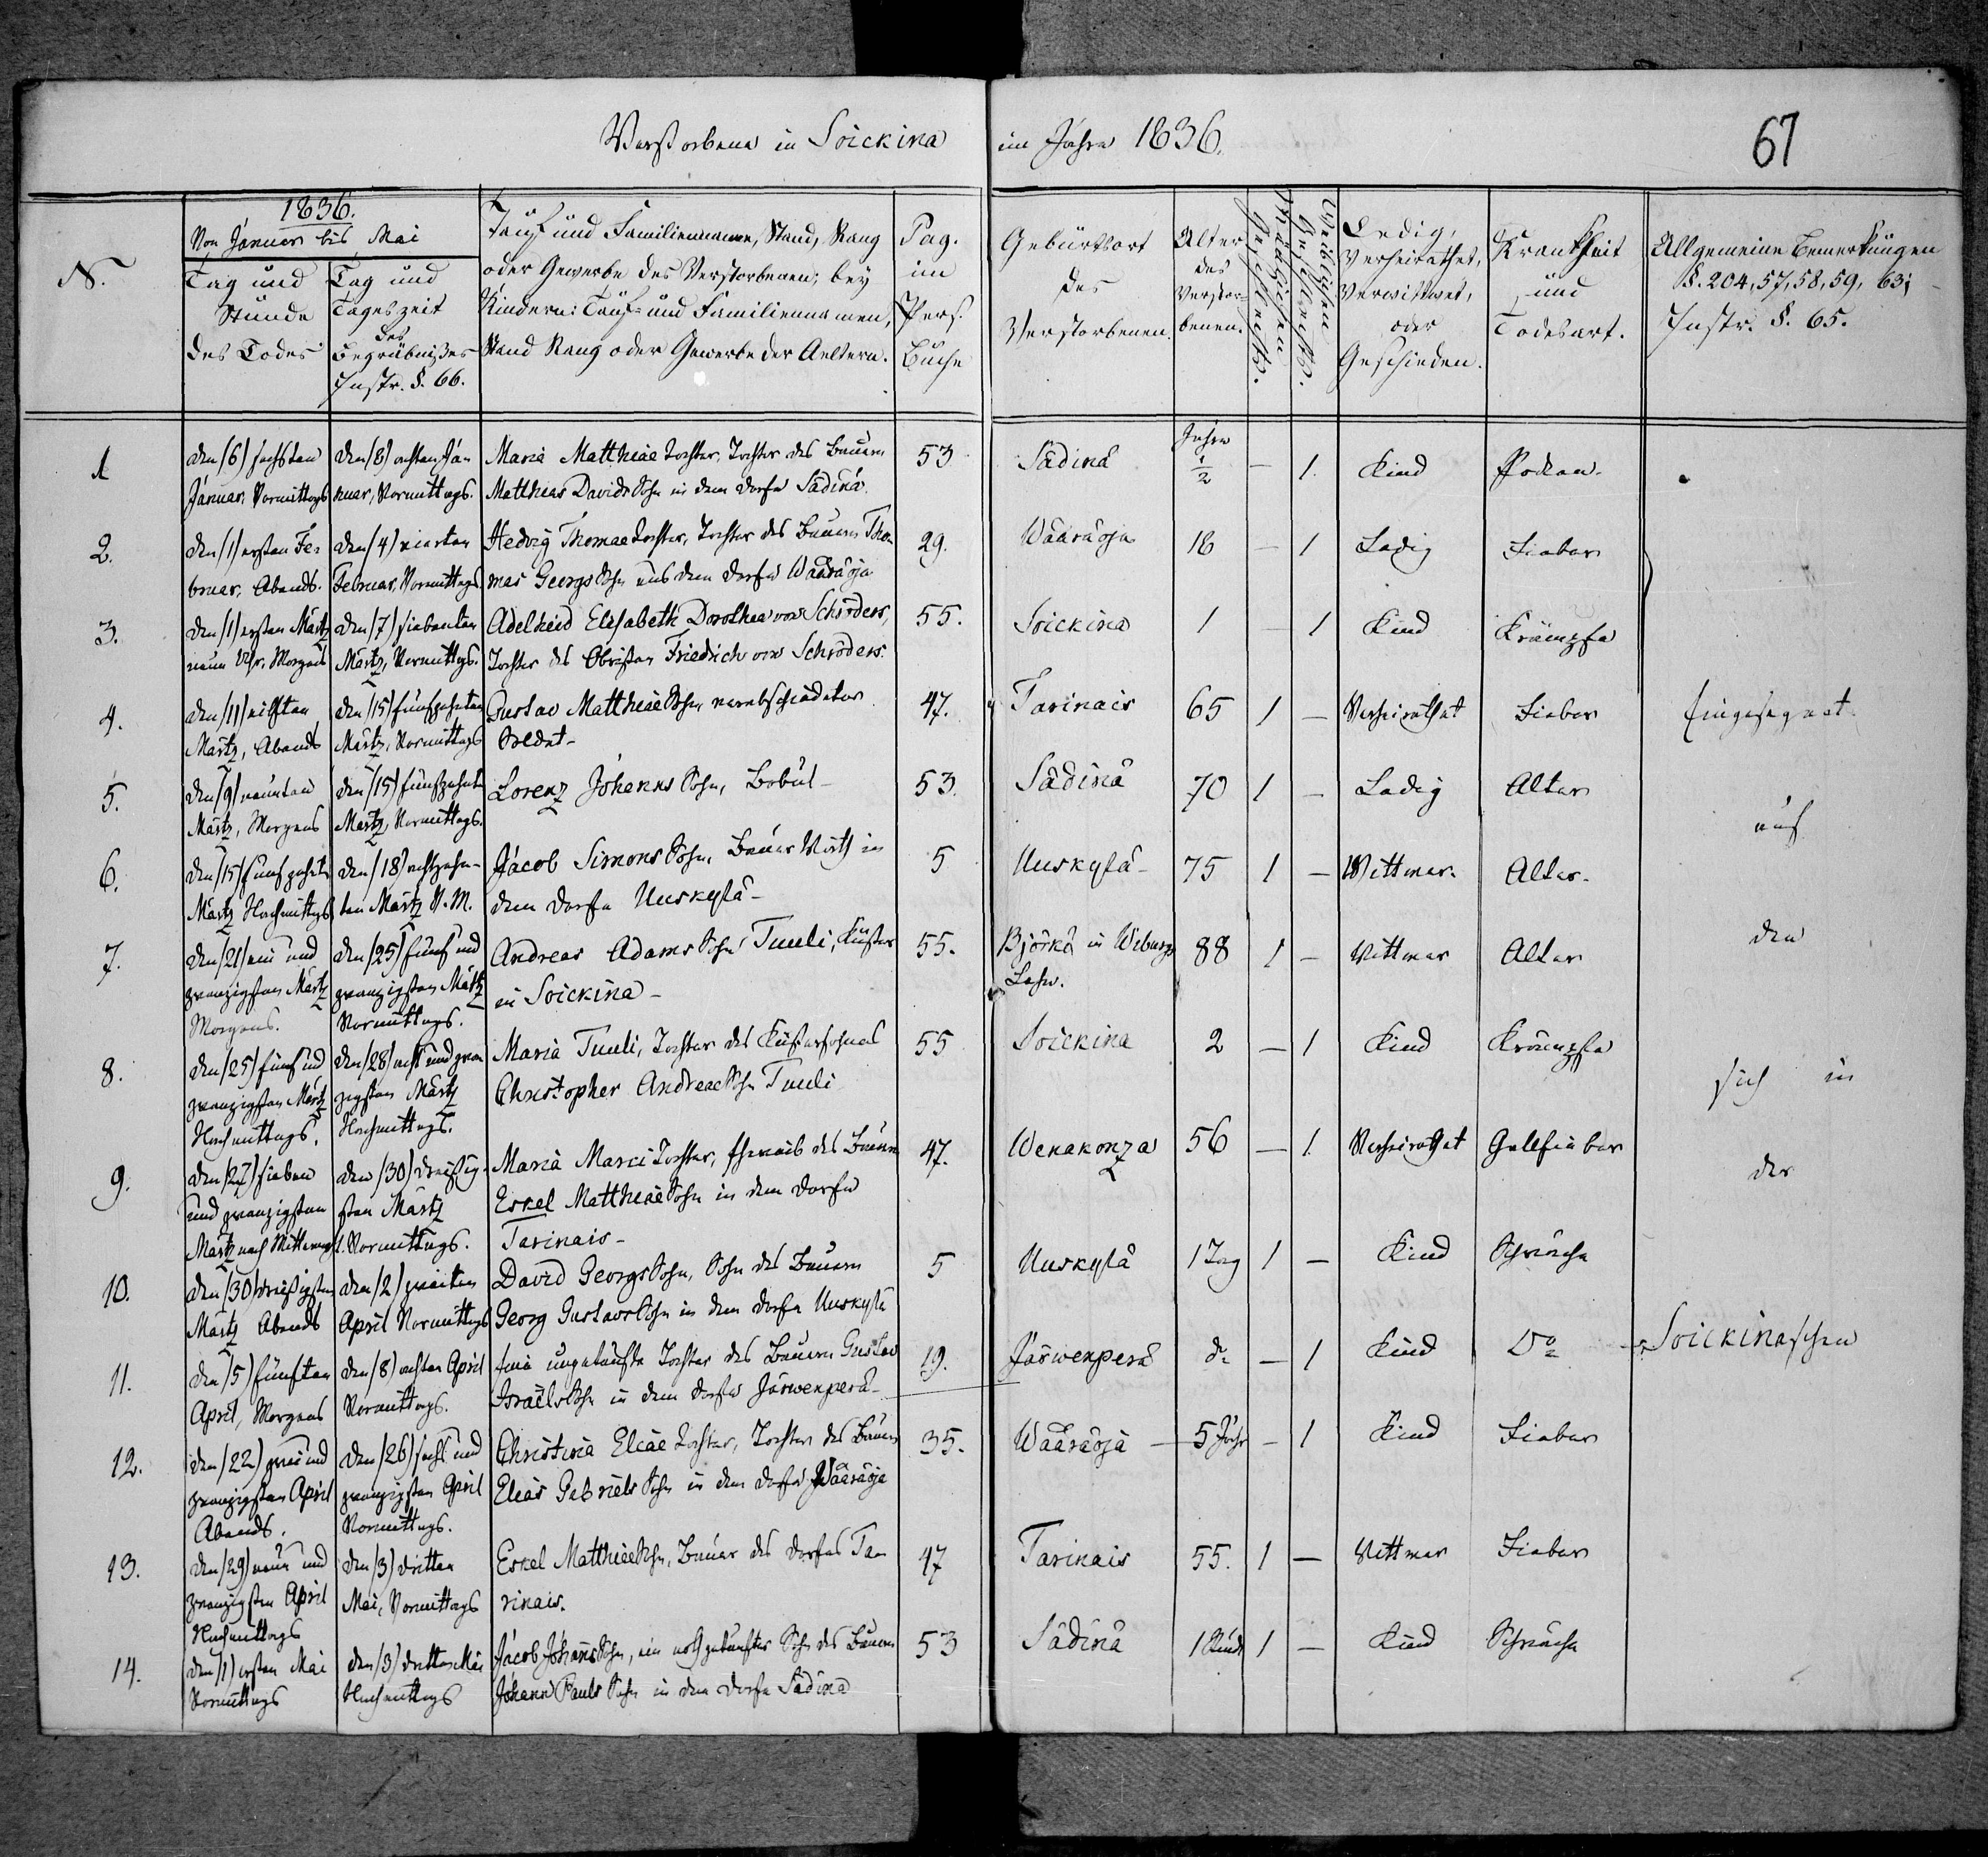 Verstorbene in Soickina im Jahre 1836.
67
N.
1836.
Von Januar bis Mai
Tag und Stunde des Todes
Tag und Tageszeit des Begräbnißes Instr. §. 66.
Tauf und Familiennamen, Stand, Rang oder Gewerbe des Verstorbenen; bey Kindern: Tauf- und Familiennamen, Stand Rang oder Gewerbe der Aeltern.
Pag. im Pers. Buche
Geburtsort des Verstorbenen.
Alter des Verstorbenen.
Männlichen Geschlechts.
Weiblichen Geschlechts.
Ledig, Verheirathet, Verwittwet, oder Geschieden.
Krankheit und Todesart.
Allgemeine Bemerkungen §. 204, 57, 58, 59, 63; Instr. §. 65.
1
den (6) sechsten Januar, Vormittags
den (8) achten Januar, Vormittags.
Maria Matthiae Tochter, Tochter des Bauern
Matthias Davids Sohn in dem Dorfe Sädinä.
53 Sädinä Jahre 1/2 — 1. Kind Pocken.
2.
den (1) ersten Februar, Abends.
den (4) vierten Februar, Vormittags.
Hedvig Thomae Tochter, Tochter des Bauern Thomas
Georgs Sohn aus dem Dorfe Wääräoja
29. Wääräoja 18 — 1 Ledig Fieber
3.
den (1) ersten Märtz neun Uhr, Morgens
den (7) siebenten Märtz, Vormittags.
Adelheid Elisabeth Dorothea von Schröders,
Tochter des Obristen Friedrich von Schröders.
55. Soickina 1 — 1 Kind Krämpfe
4.
den (11) eilften Märtz, Abends
den (15) fünfzehnten Märtz, Vormittags
Gustav Matthiae Sohn, verabschiedeter
Soldat -
47. Tarinais 65 1 — Verheirathet Fieber Eingesegnet
5.
den (9) neunten Märtz, Morgens
den (15) fünfzehnten Märtz, Vormittags.
Lorenz Johanns Sohn, Bobül -
53. Sädinä 70 1 — Ledig Alter
auf
6.
den (15) fünfzehnten Märtz Nachmittags
den (18) achtzehnten Märtz V. M.
Jacob Simons Sohn, Bauer Wirth in
dem Dorfe Uuskylä -
5 Uuskylä - 75 1 — Wittwer. Alter.
7.
den (21) ein und zwanzigsten Märtz Morgens.
den (25) fünf und zwanzigsten Märtz Vormittags.
Andreas Adams Sohn Tuuli, Küster
in Soickina -
55. Björkö in Wiburgs Lehn. 88 1 — Wittwer Alter den
8.
den (25) fünf und zwanzigsten Märtz Nachmittags.
den (28) acht und zwanzigsten Märtz Nachmittags.
Maria Tuuli, Tochter des Küstersohnes
Christopher Andreae Sohn Tuuli
55 Soickina 2 — 1 Kind Krämpfe
sich in
9.
den (27) sieben und zwanzigsten Märtz nach Mitternacht.
den (30) dreißigsten Märtz Vormittags.
Maria Marci Tochter, Eheweib des Bauern
Eskel Matthiae Sohn in dem Dorfe
Tarinais -
47. Wenakonza 56 — 1. Verheirathet Gallfieber der
10.
den (30) dreißigsten Märtz Abends
den (2) zweiten April Vormittags
David Georgs Sohn, Sohn des Bauern
Georg Gustavs Sohn in dem Dorfe Uuskylä
5 Uuskylä 1 Tag 1 — Kind Schwäche
11.
den (5) fünften April, Morgens
den (8) achten April Vormittags.
Eine ungetaufte Tochter des Bauern Gustav
Israels Sohn in dem Dorfe Järwenperä -
19. Järwenperä do — 1 Kind Do Soickinaschen
12.
den (22) zwei und zwanzigsten April Abends.
den (26) sechs und zwanzigsten April Vormittags.
Christina Eliae Tochter, Tochter des Bauern
Elias Gabriels Sohn in dem Dorfe Wääräoja
35. Wääräoja — 5 Jahr — 1 Kind Fieber
13.
den (29) neun und zwanzigsten April Nachmittags
den (3) dritten Mai, Vormittags
Eskel Matthiae Sohn, Bauer des Dorfes Tarinais.
47 Tarinais 55. 1 — Wittwer Fieber
14.
den (1) ersten Mai Vormittags
den (3) dritten Mai Nachmittags
Jacob Johanns Sohn, ein nothgetaufter Sohn des Bauern
Johann Pauls Sohn in dem Dorfe Sädinä
53 Sädinä 1 Stunde 1 — Kind Schwäche